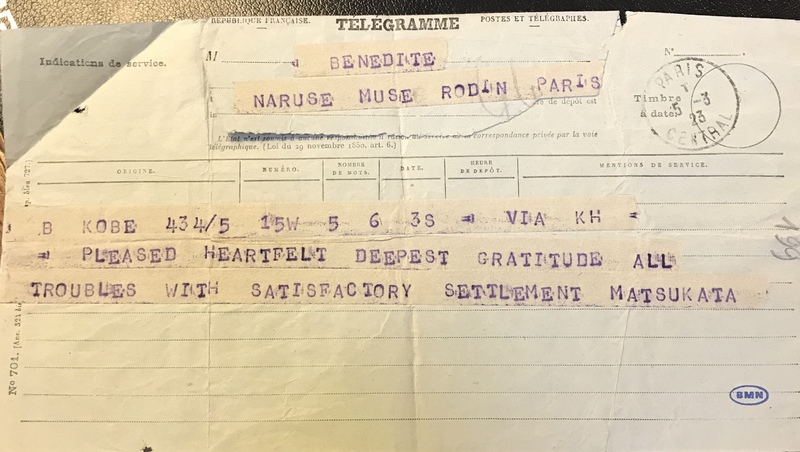 RÉPUBLIQUE FRANÇAISE. TÉLÉGRAMME POSTES ET TÉLÉGRAPHES.
Indications de service.
M BENEDITE
N°
NARUSE MUSE RODIN PARIS
re de dépôt est
Timbre à date:
PARIS 5 -3 23 CENTRAL
L'État n'est soumis à aucune responsabilité à de la correspondance privée par la voie
télégraphique. (Loi du 29 novembre 1850, art. 6.)
ORIGINE. NUMÉRO. NOMBRE DE MOTS. DATE. HEURE DE DÉPÔT. MENTIONS DE SERVICE.
B KOBE 434/5 15W 5 6 3S = VIA KH =
= PLEASED HEARTFELT DEEPEST GRATITUDE ALL
TROUBLES WITH SATISFACTORY SETTLEMENT MATSUKATA
199
N° 701.
BMN